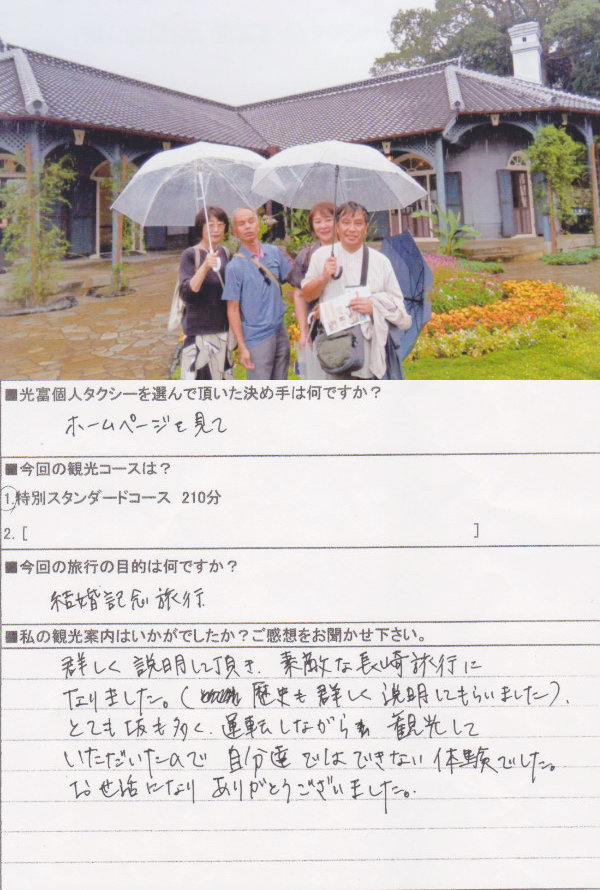 ■光富個人タクシーを選んで頂いた決め手は何ですか？
ホームページを見て
■今回の観光コースは？
1.特別スタンダードコース 210分
2.[ ]
■今回の旅行の目的は何ですか？
結婚記念旅行
■私の観光案内はいかがでしたか？ご感想をお聞かせ下さい。
群しく説明して頂き、素敵な長崎旅行に
なりました。(歴史も群しく説明してもらいました)、
とても坂も多く、運転しながら観光して
いただいたので自分達ではできない体験でした。
お世話になりありがとうございました。